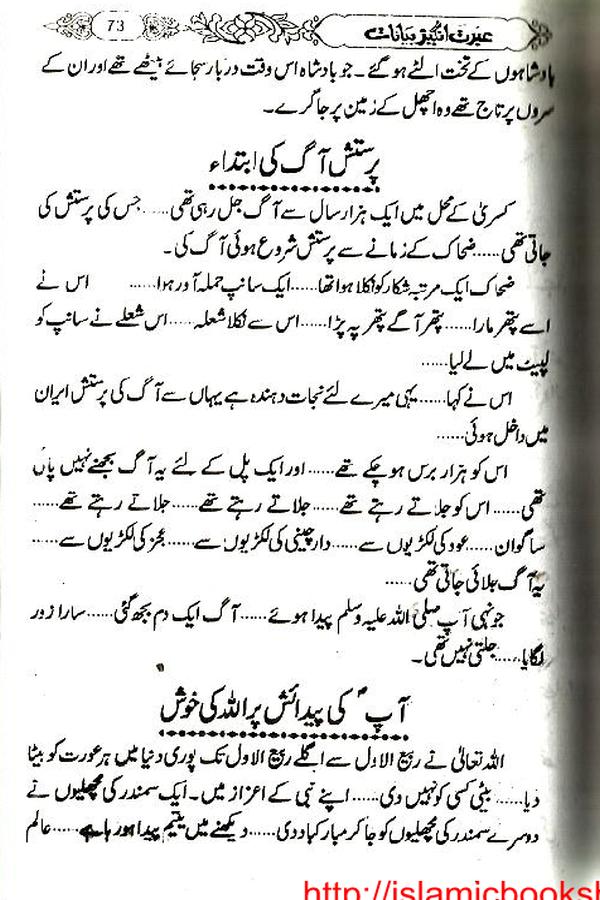 73
عبرت انگیز بیانات
بادشاہوں کے تخت الٹے ہو گئے۔ جو بادشاہ اس وقت دربار سجائے بیٹھے تھے اور ان کے
سروں پر تاج تھے وہ اچھل کے زمین پر جا گرے۔
پرستش آگ کی ابتداء
کسریٰ کے محل میں ایک ہزار سال سے آگ جل رہی تھی..... جس کی پرستش کی
جاتی تھی..... ضحاک کے زمانے سے پرستش شروع ہوئی آگ کی۔
ضحاک ایک مرتبہ شکار کو نکلا ہوا تھا...... ایک سانپ حملہ آور ہوا...... اس نے
اسے پتھر مارا...... پتھر آگے پتھر پہ پڑا...... اس سے نکلا شعلہ..... اس شعلے نے سانپ کو
لپیٹ میں لے لیا......
اس نے کہا...... یہی میرے لئے نجات دہندہ ہے یہاں سے آگ کی پرستش ایران
میں داخل ہوئی......
اس کو ہزار برس ہو چکے تھے...... اور ایک پل کے لئے یہ آگ بجھنے نہیں پاں
تھی...... اس کو جلاتے رہتے تھے...... جلاتے رہتے تھے...... جلاتے رہتے تھے......
ساگوان...... عود کی لکڑیوں سے...... دارچینی کی لکڑیوں سے...... کی لکڑیوں سے......
یہ آگ جلائی جاتی تھی......
جونہی آپ صلی اللہ علیہ وسلم پیدا ہوئے...... آگ ایک دم بجھ گئی...... سارا زور
لگایا...... جلتی نہیں تھی۔
آپؐ کی پیدائش پر اللہ کی خوش
اللہ تعالیٰ نے ربیع الاول سے اگلے ربیع الاول تک پوری دنیا میں ہر عورت کو بیٹا
دیا...... بیٹی کسی کو نہیں دی...... اپنے نبی کے اعزاز میں۔ ایک سمندر کی مچھلیوں نے
دوسرے سمندر کی مچھلیوں کو جا کر مبارکباد دی...... دیکھنے میں یتیم پیدا ہو رہا ہے...... عالم
http://islamicbooksh